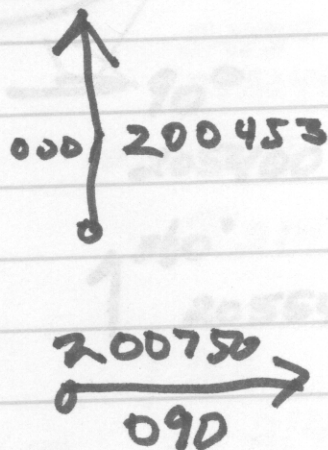 000 200453
200750
090